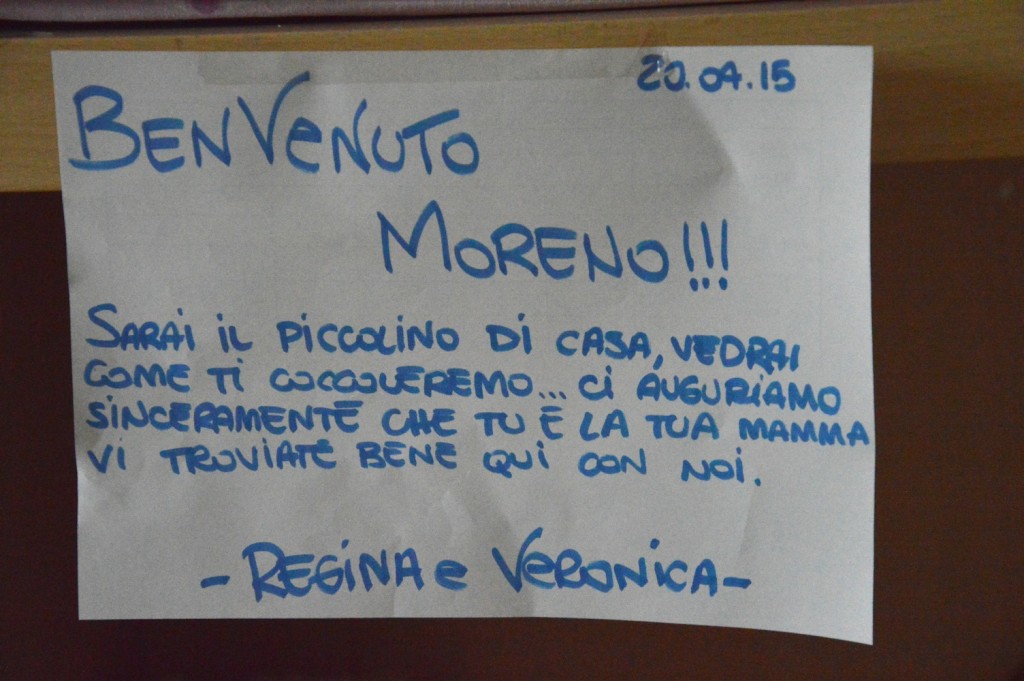 20.04.15
BENVENUTO
MORENO!!!
SARAI IL PICCOLINO DI CASA, VEDRAI
COME TI COCCOLEREMO... CI AUGURIAMO
SINCERAMENTE CHE TU E LA TUA MAMMA
VI TROVIATE BENE QUI CON NOI.
- REGINA e VERONICA -